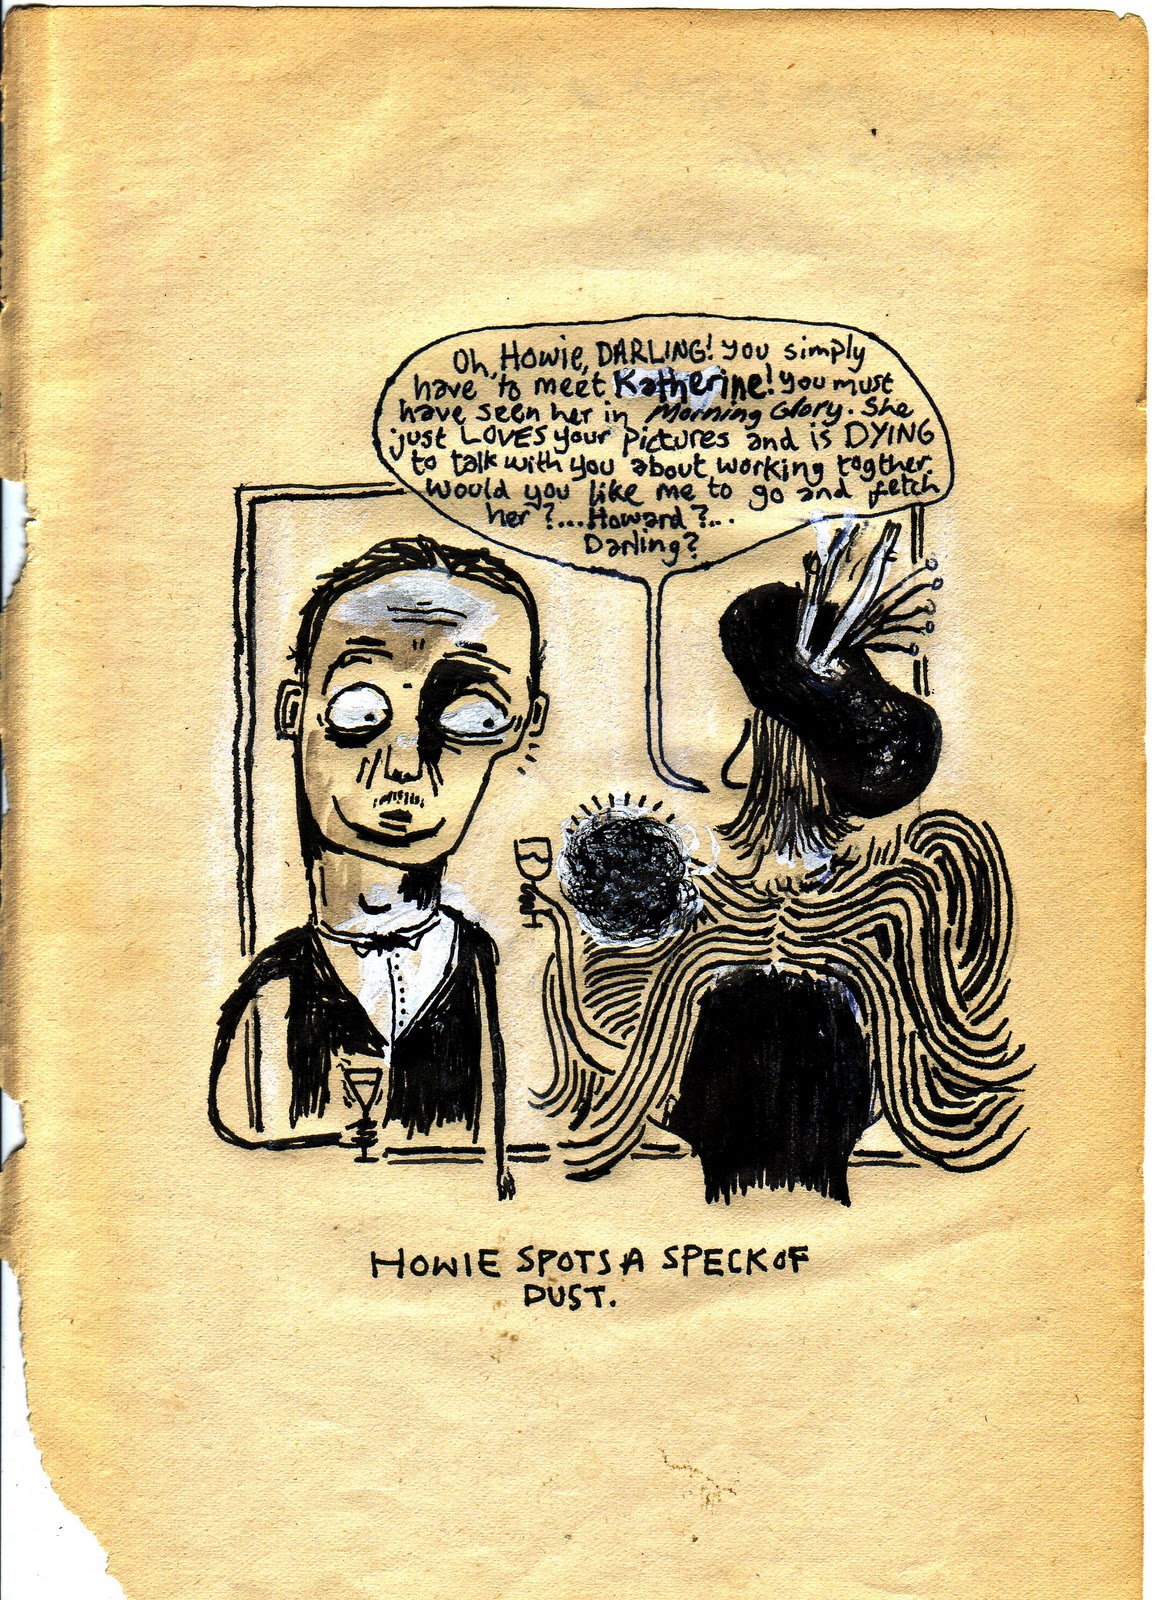 Oh, Howie, DARLING! You simply
have to meet Katherine! You must
have seen her in Morning Glory. She
just LOVES your pictures and is DYING
to talk with you about working togther.
Would you like me to go and fetch
her?...Howard?...
Darling?
HOWIE SPOTS A SPECK OF
DUST.